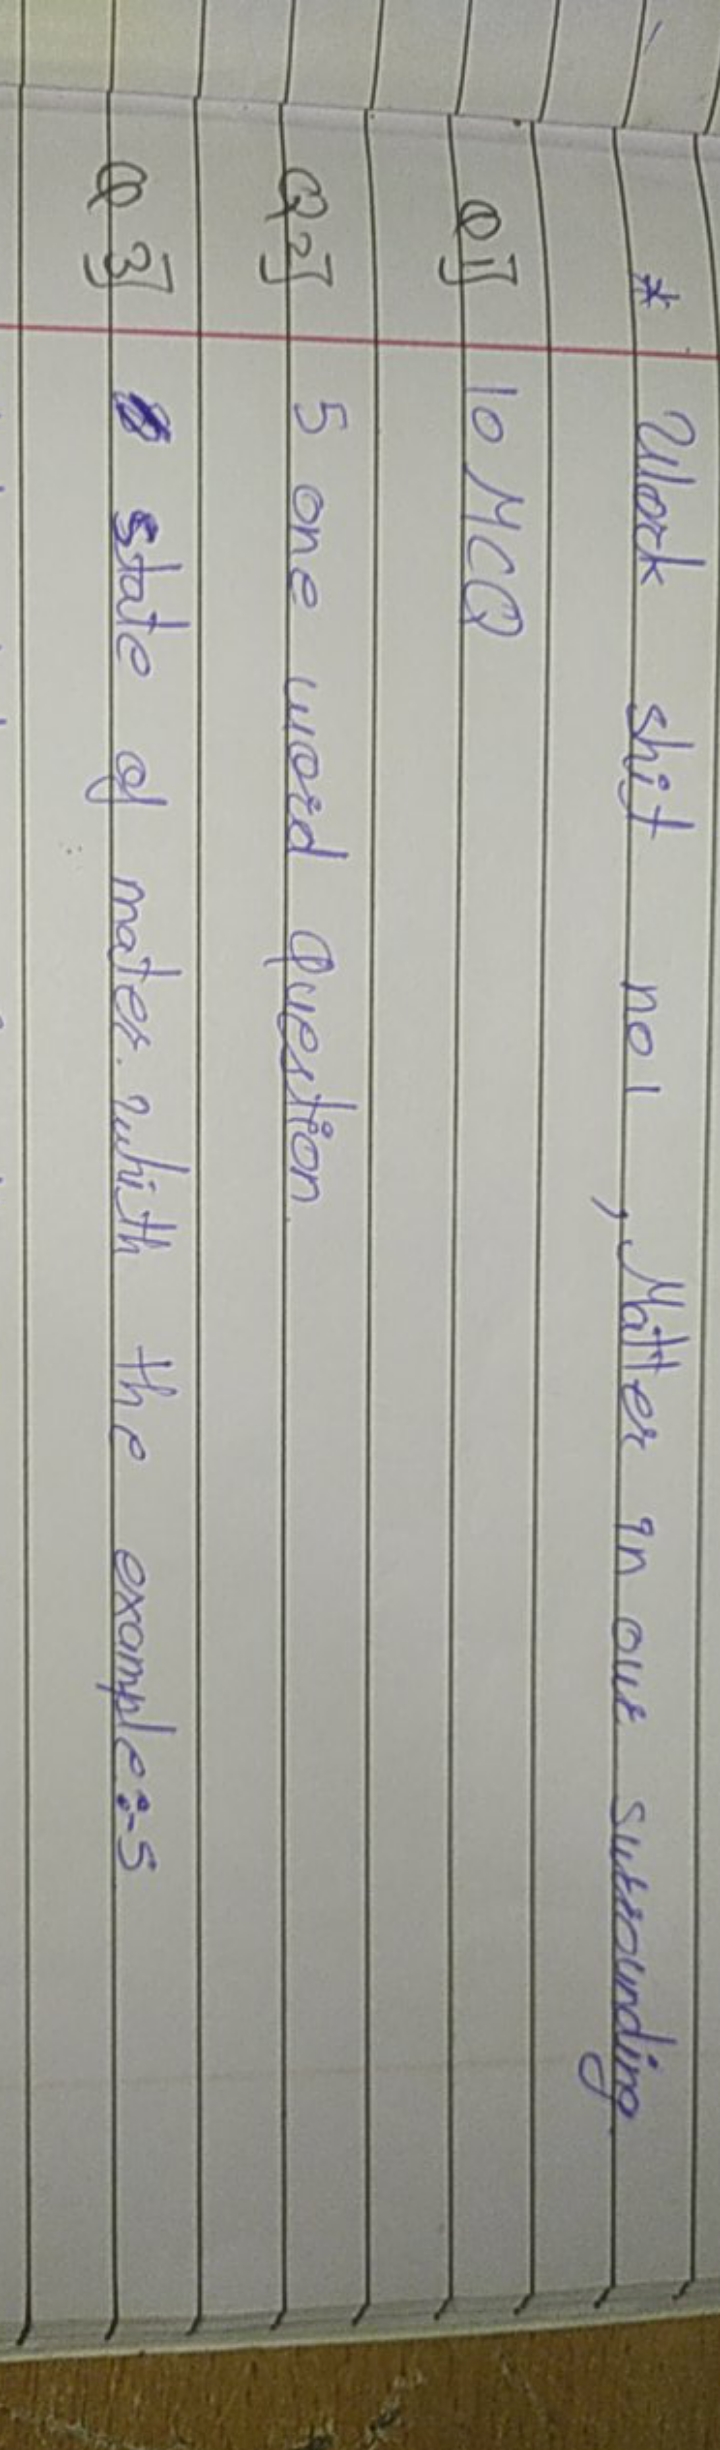 * Work shit no1 , Matter in our surrounding
Q1] 10 MCQ
Q2] 5 one word Question.
Q3] state of mater. whith the example:-5